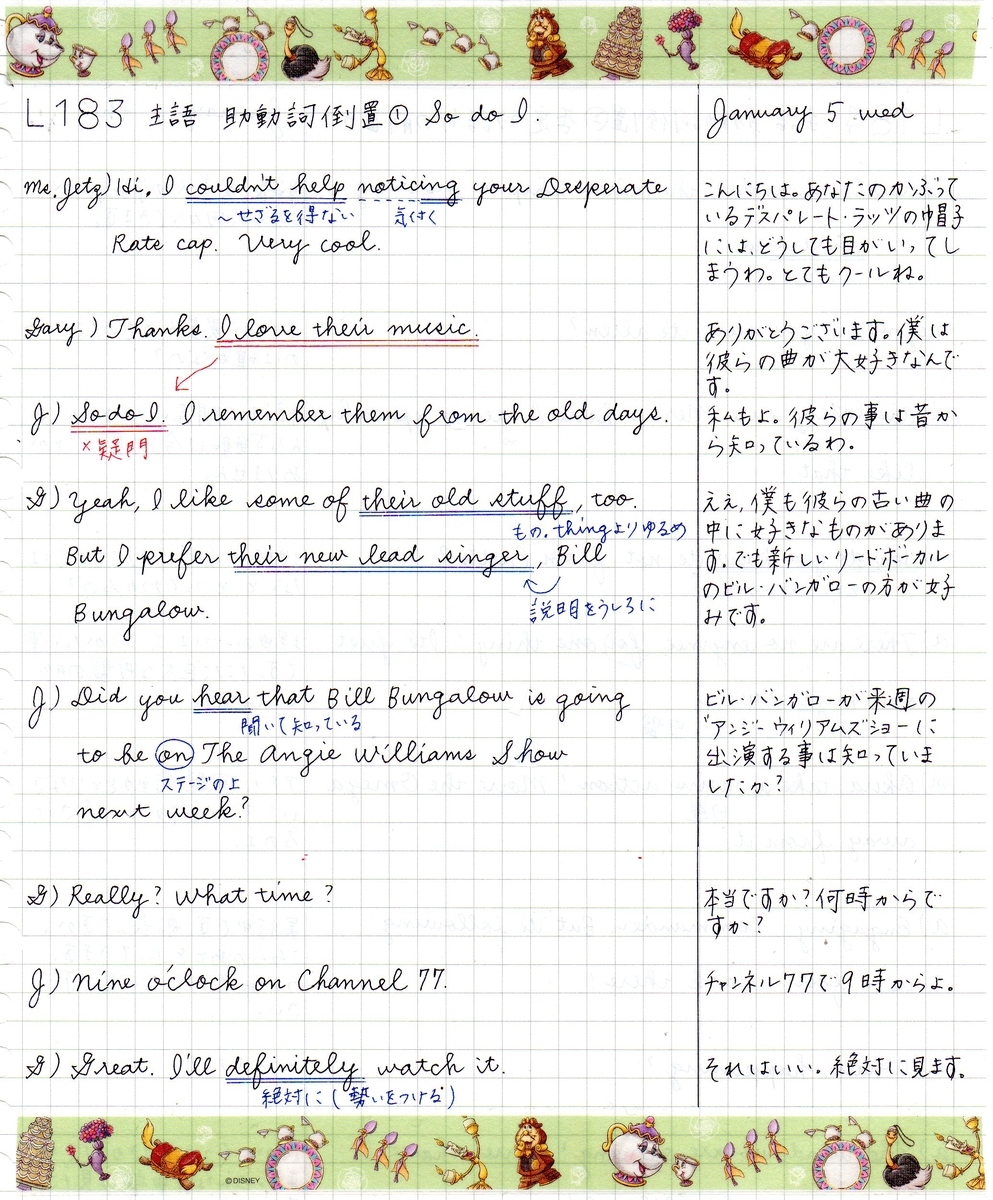 L183 主語 助動詞倒置① So do I.
January 5 wed
Ms. Jetz) Hi, I couldn't help noticing your Desperate
～せざるを得ない 気付く
Rate cap. Very cool.
こんにちは。あなたのかぶって
いるデスパレート・ラッツの帽子
には、どうしても目がいってし
まうわ。とてもクールね。
Gary) Thanks. I love their music.
ありがとうございます。僕は
彼らの曲が大好きなんで
す。
J) So do I. I remember them from the old days.
×疑問
私もよ。彼らの事は昔か
ら知っているわ。
G) Yeah, I like some of their old stuff, too.
もの。thingよりゆるめ
But I prefer their new lead singer, Bill
説明をうしろに
Bungalow.
ええ、僕も彼らの古い曲の
中に好きなものがありま
す。でも新しいリードボーカル
のビル・バンガローの方が好
みです。
J) Did you hear that Bill Bungalow is going
聞いて知っている
to be on The Angie Williams Show
ステージの上
next week?
ビル・バンガローが来週の
"アンジーウィリアムズショーに
出演する事は知っていま
したか？
G) Really? What time?
本当ですか？何時からで
すか？
J) Nine o'clock on Channel 77.
チャンネル77で9時からよ。
G) Great. I'll definitely watch it.
絶対に(勢いをつける)
それはいい。絶対に見ます。
©DISNEY